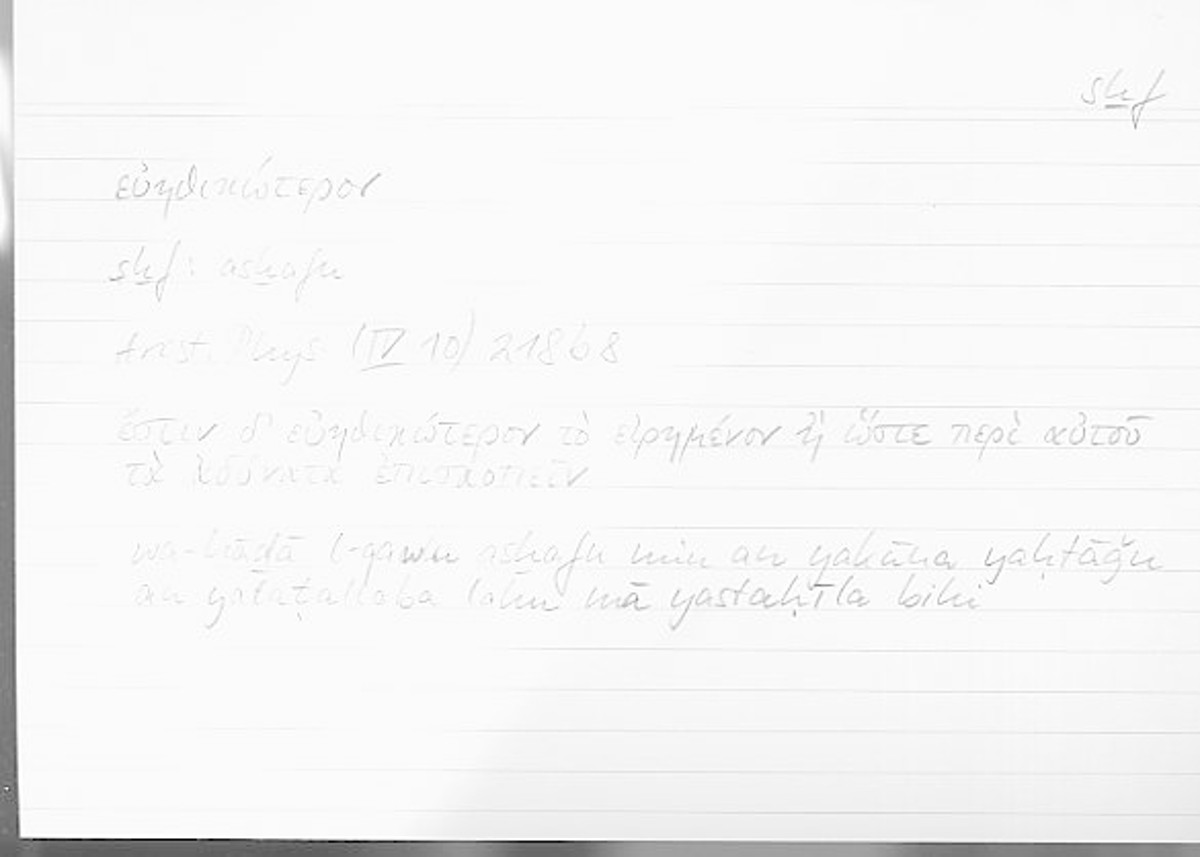 sḫf
εὐηθικώτερον
sḫf: asḫafu
Arist. Phys (IV 10) 218b8
ἔστιν δ' εὐηθικώτερον τὸ εἰρημένον ἢ ὥστε περὶ αὐτοῦ
τὰ ἀδύνατα ἐπισκοπεῖν
wa-hāḏā l-qawlu asḫafu min an yakūna yaḥtāǧu
an yataṭallaba lahu mā yastaḥīla bihi